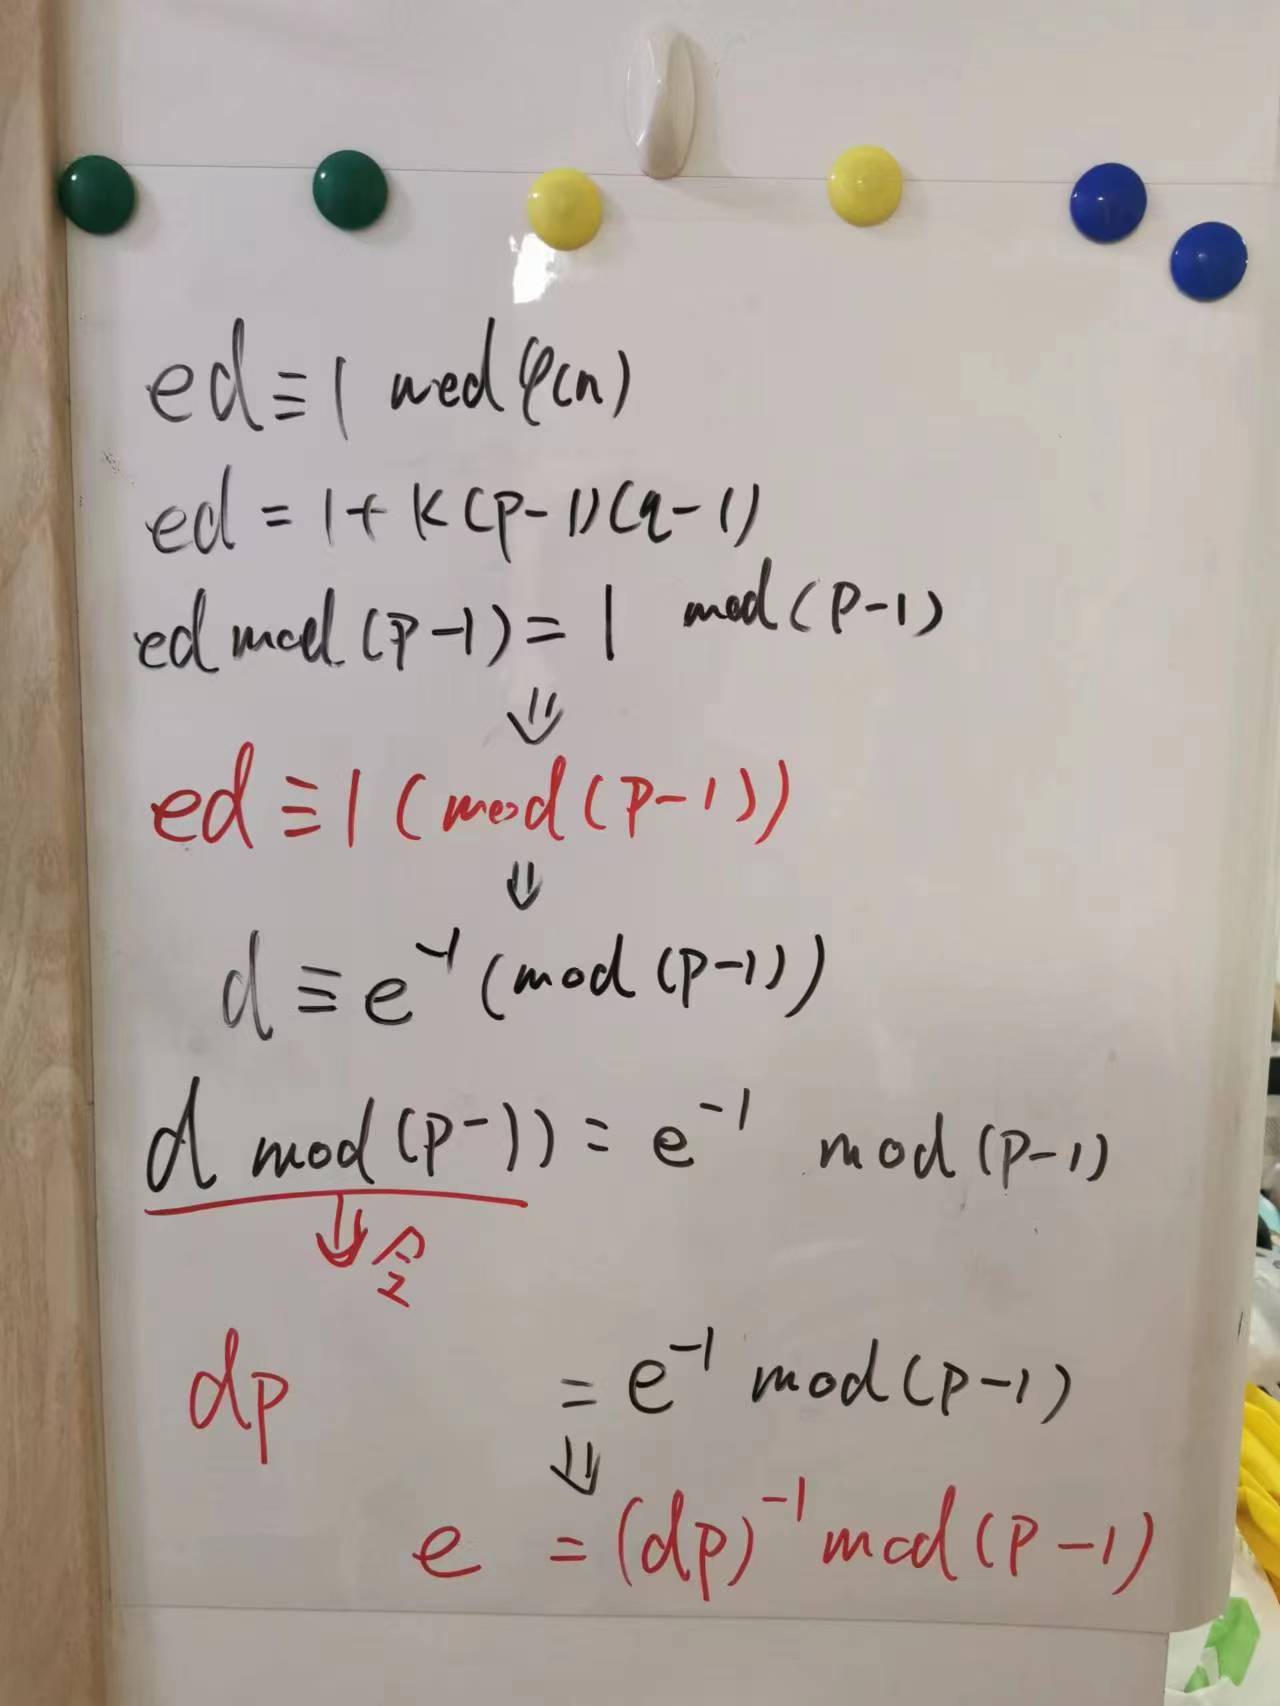 ed≡1 mod φ(n)
ed = 1+ k(p-1)(q-1)
ed mod (p-1) = 1 mod (p-1)
⇓
ed≡1 (mod (p-1))
⇓
d ≡ e⁻¹ (mod (p-1))
d mod (p-1) = e⁻¹ mod (p-1)
⇓ 令
dp = e⁻¹ mod (p-1)
⇓
e = (dp)⁻¹ mod (p-1)